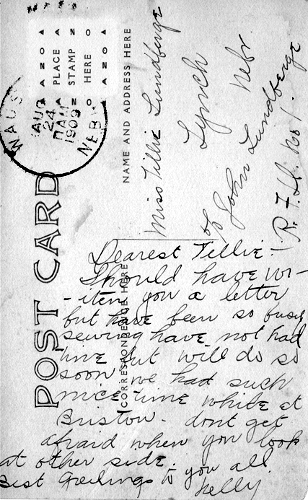 WAUSA
AUG
24
1909
NEBR
AZO
PLACE
STAMP
HERE
AZO
NAME AND ADDRESS HERE
POST CARD
CORRESPONDENCE HERE
Miss Tillie Lundberge
Lynch
Nebr
c/o John Lundberge
R. F. D. Box 1
Dearest Tillie:-
I should have wr-
-iten you a letter
but have been so busy
sewing have not had
time but will do so
soon. we had such
nice time while at
Bristow. dont get
afraid when you look
at other side.
Best Greetings to you all
Kelly